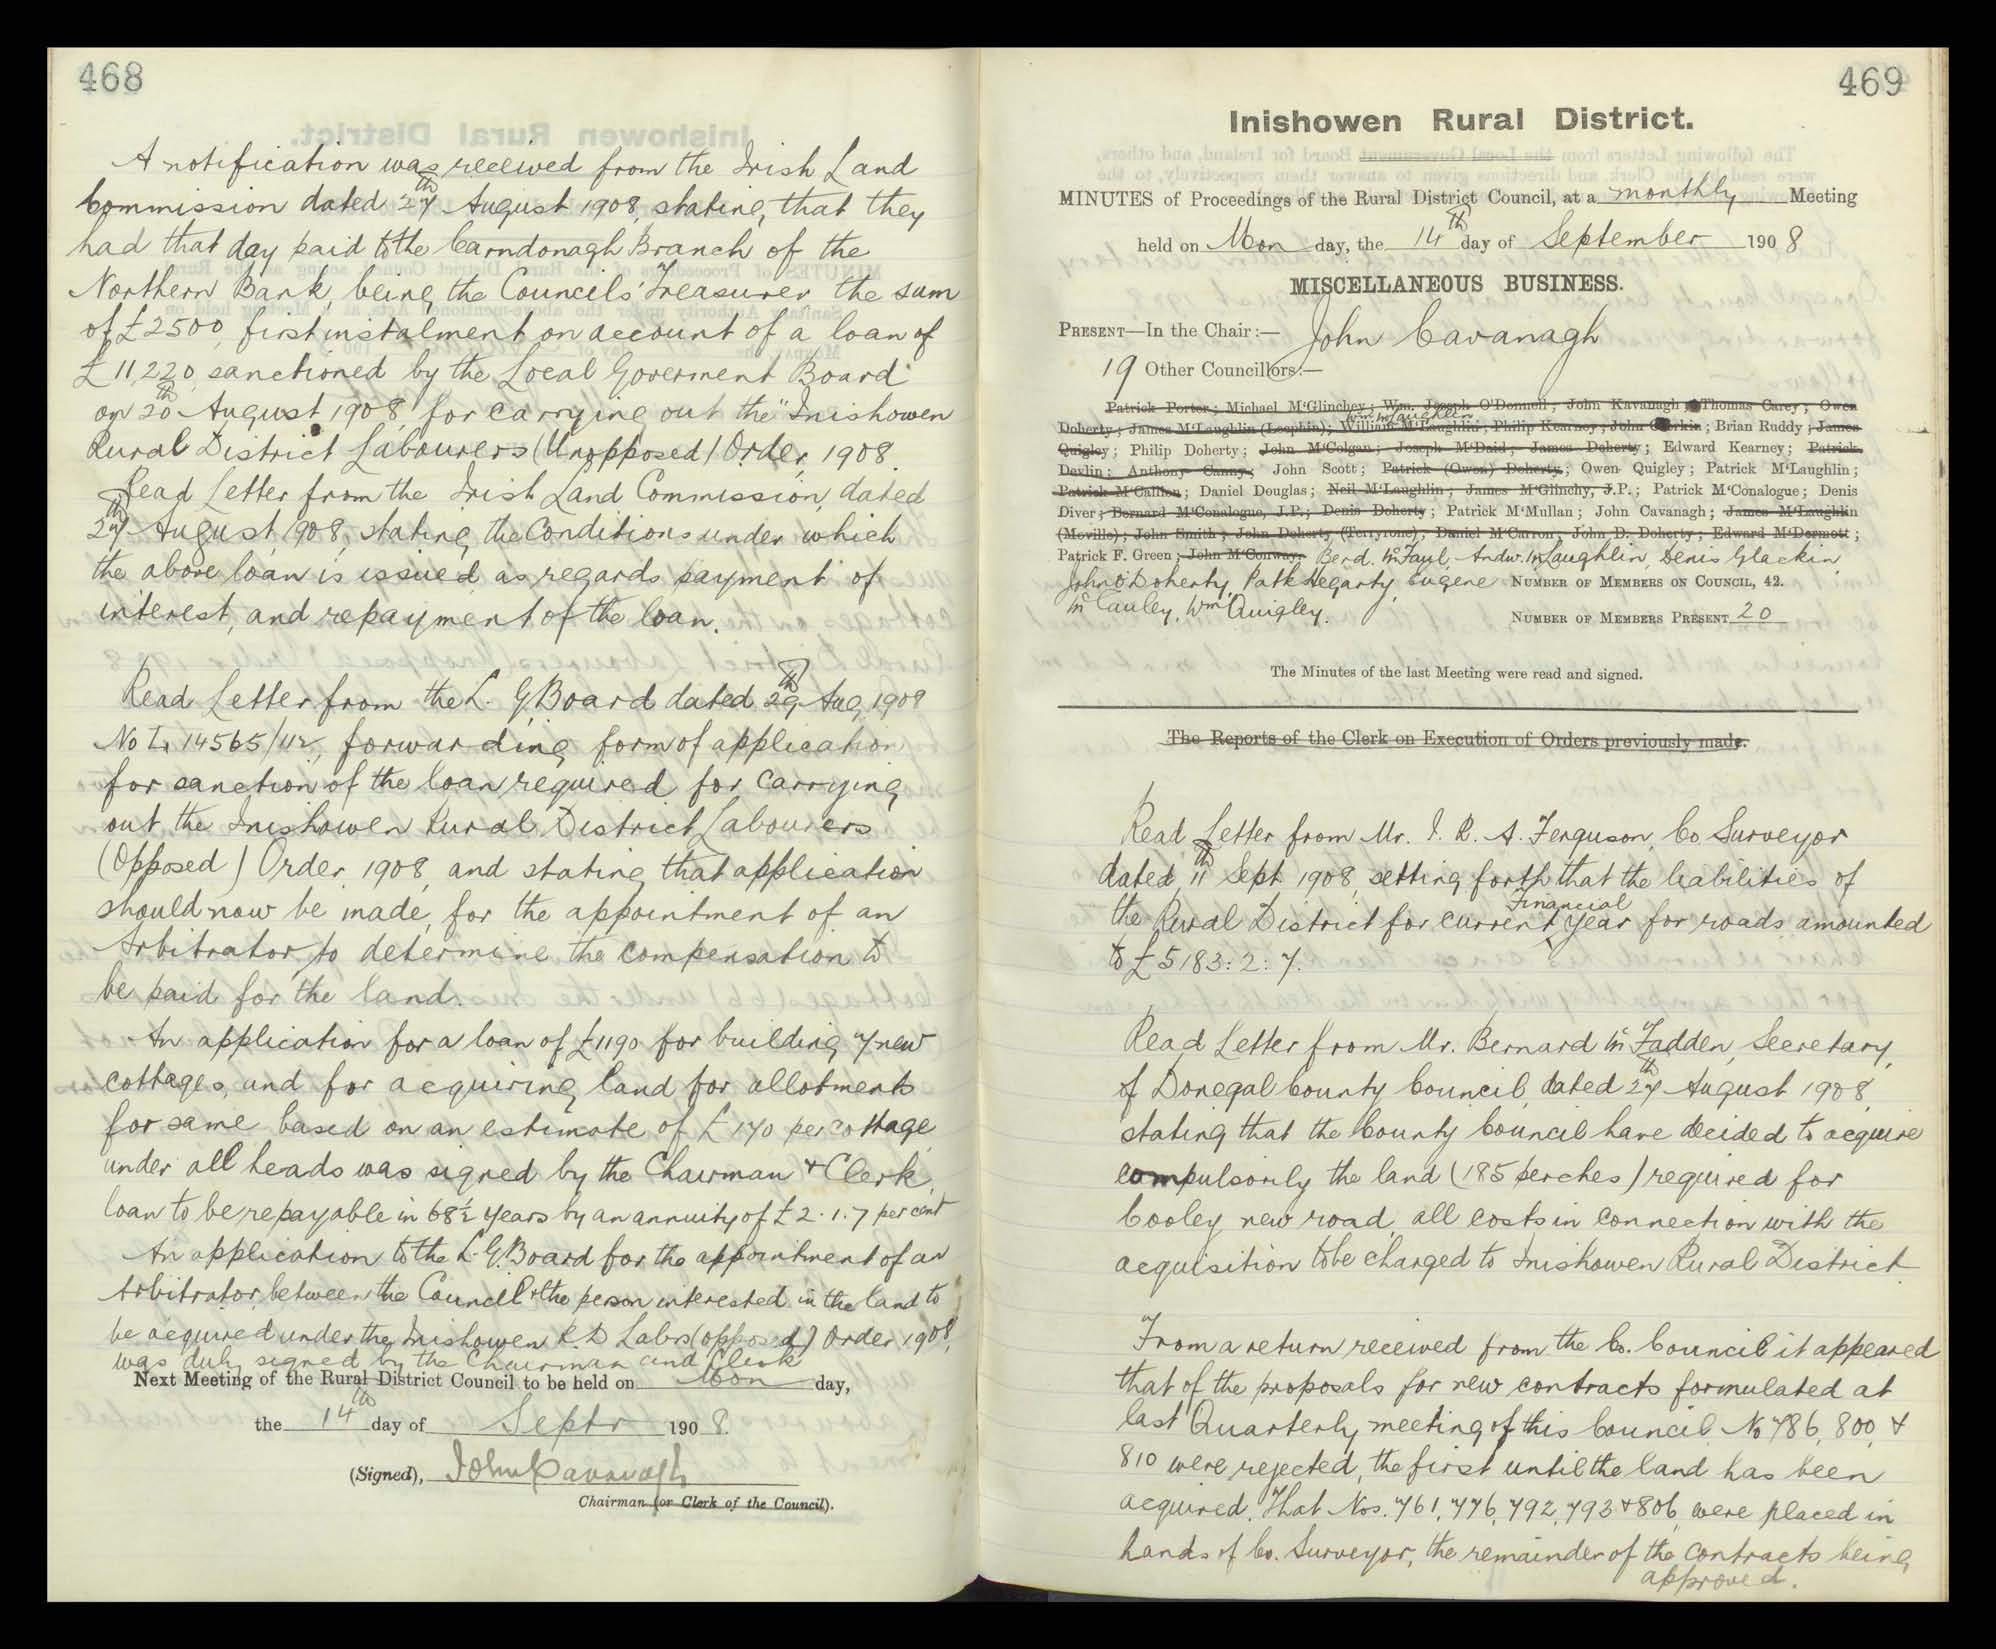 468
A notification was received from the Irish Land
Commission dated 27th August 1908, stating, that they
had that day paid to the Carndonagh Branch of the
Northern Bank, being, the Councils' Treasurer the sum
of £2500, first instalment on account of a loan of
£11,220, sanctioned by the Local Goverment Board
on 20th August 1908, for carrying out the "Inishowen
Rural District Labourers (Unopposed) Order, 1908.
Read Letter from the Irish Land Commission, dated
27th August 1908, stating, the conditions under which
the above loan is issued as regards payment of
interest, and repayment of the loan.
Read Letter from the L. G. Board dated 29th Aug 1908
No L, 14565/, forwarding form of application
for sanction of the loan required for carrying
out the Inishowen Rural District Labourers
(Opposed) Order, 1908, and stating that application
should now be made, for the appointment of an
Arbitrator, to determine the compensation to
be paid for the land.
An application for a loan of £1190 for building 7 new
cottages, and for acquiring land for allotments
for same, based on an estimate of £170 per cottage
under all heads was signed by the Chairman & Clerk,
loan to be repayable in 68½ years by an annuity of £2.1.7 per cent
An application to the L. G. Board for the appointment of an
Arbitrator, between the Council & the person interested in the land to
be acquired under the Inishowen R. D Labrs (opposed) Order 1908,
was duly signed by the Chairman and Clerk
Next Meeting of the Rural District Council to be held on Mon day,
the 14th day of Septr 1908.
(Signed), John Cavanagh
Chairman (or Clerk of the Council).
469
Inishowen Rural District.
MINUTES of Proceedings of the Rural District Council, at a monthly Meeting
held on Mon day, the 14th day of September 1908
MISCELLANEOUS BUSINESS.
PRESENT—In the Chair:— John Cavanagh
19 Other Councillors:—
Patrick Porter; Michael M'Glinchey; Wm. Joseph O'Donnell; John Kavanagh; Thomas Carey; Owen
Wm McLaughlin
Doherty; James M'Laughlin (Leophin); William M'Laughlin; Philip Kearney; John; Brian Ruddy; James
Quigley; Philip Doherty; John M'Colgan; Joseph M'Daid; James Doherty; Edward Kearney; Patrick
Devlin; Anthony Canny; John Scott; Patrick (Owen) Doherty; Owen Quigley; Patrick M'Laughlin;
Patrick M'Callion; Daniel Douglas; Neil M'Laughlin; James M'Glinchy, J.P.; Patrick M'Conalogue; Denis
Diver; Bernard M'Conalogue, J.P.; Denis Doherty; Patrick M'Mullan; John Cavanagh; James M'Laughlin
(Moville); John Smith; John Doherty (Terryrone); Daniel M'Carron; John D. Doherty; Edward M'Dermott;
Patrick F. Green; John M'Conway. Berd. McFaul, Andw. McLaughlin, Denis Glackin,
John O'Doherty, Patk Hegarty, Eugene NUMBER OF MEMBERS ON COUNCIL, 42.
McCauley, Wm Quigley.
NUMBER OF MEMBERS PRESENT 20
The Minutes of the last Meeting were read and signed.
The Reports of the Clerk on Execution of Orders previously made.
Read Letter from Mr. I. R. A. Ferguson, Co Surveyor
dated 11th Sept 1908, setting forth that the liabilities of
the Rural District for current Financial year for roads amounted
to £5183:2:7.
Read Letter from Mr. Bernard McFadden, Secretary,
of Donegal County Council, dated 27th August 1908,
stating that the County Council have decided to acquire
compulsorily the land (185 perches) required for
Cooley new road, all costs in connection with the
acquisition to be charged to Inishowen Rural District.
From a return received from the Co. Council it appeared
that of the proposals for new contracts formulated at
last Quarterly meeting of this Council No 786, 800, &
810 were rejected, the first until the land has been
acquired. That Nos. 761, 776, 792, 793 & 806, were placed in
hands of Co. Surveyor, the remainder of the contracts being
approved.